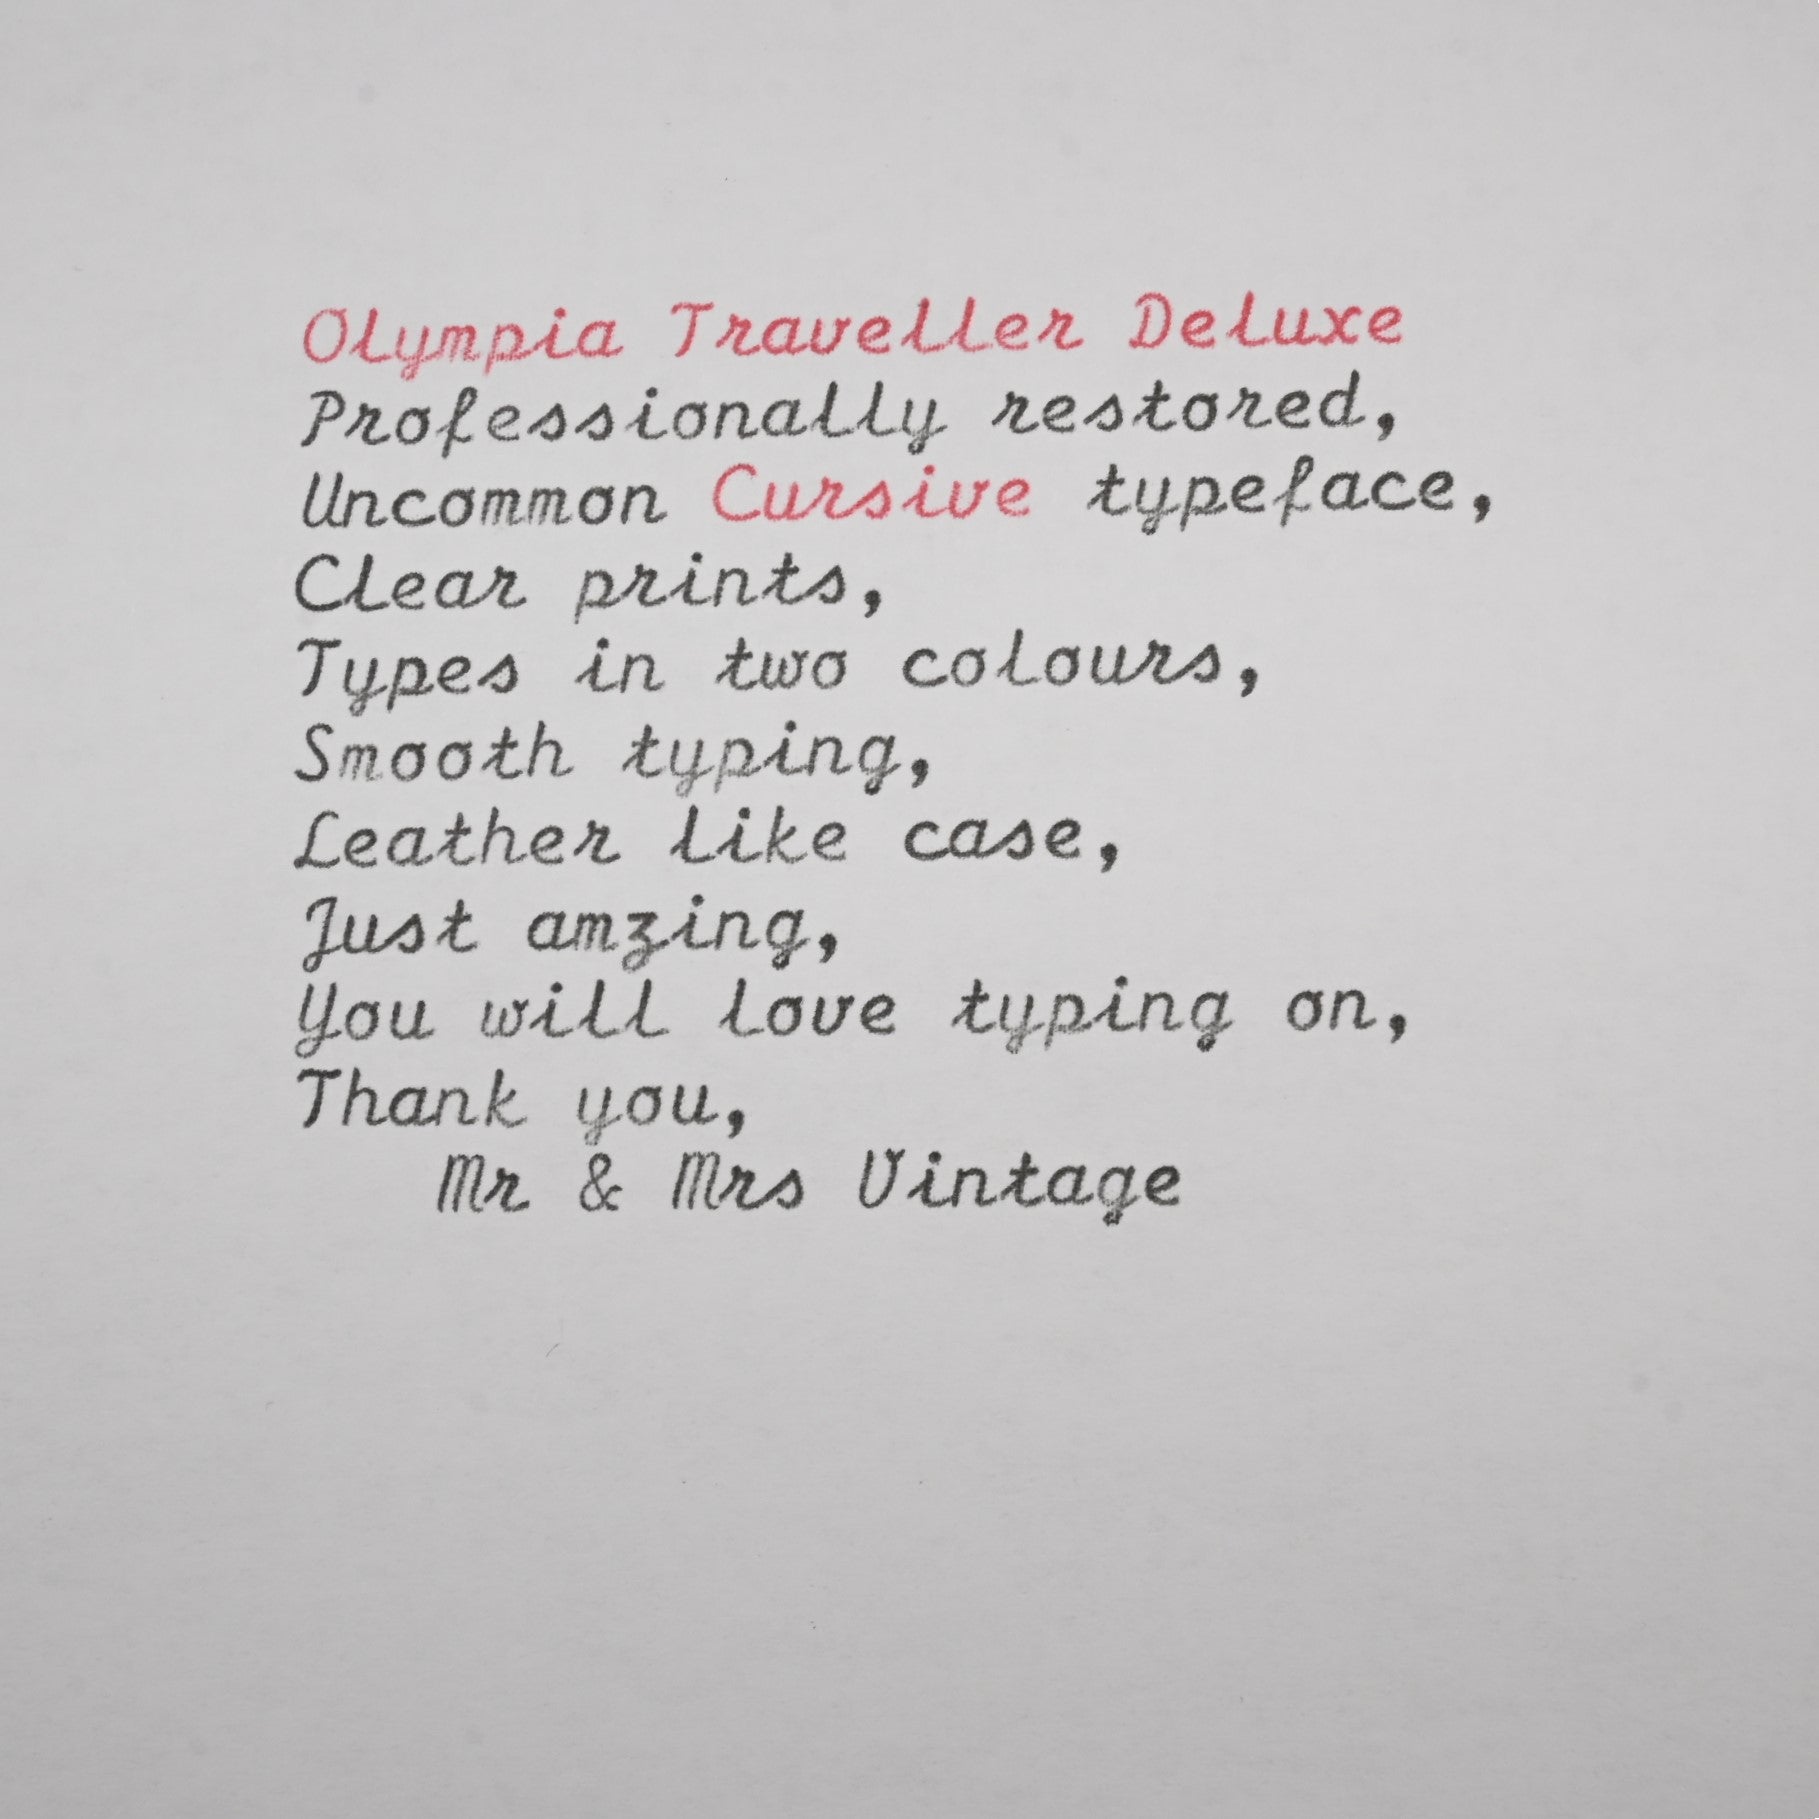 Olympia Traveller Deluxe
Professionally restored,
Uncommon Cursive typeface,
Clear prints,
Types in two colours,
Smooth typing,
Leather like case,
Just amzing,
You will love typing on,
Thank you,
Mr & Mrs Vintage